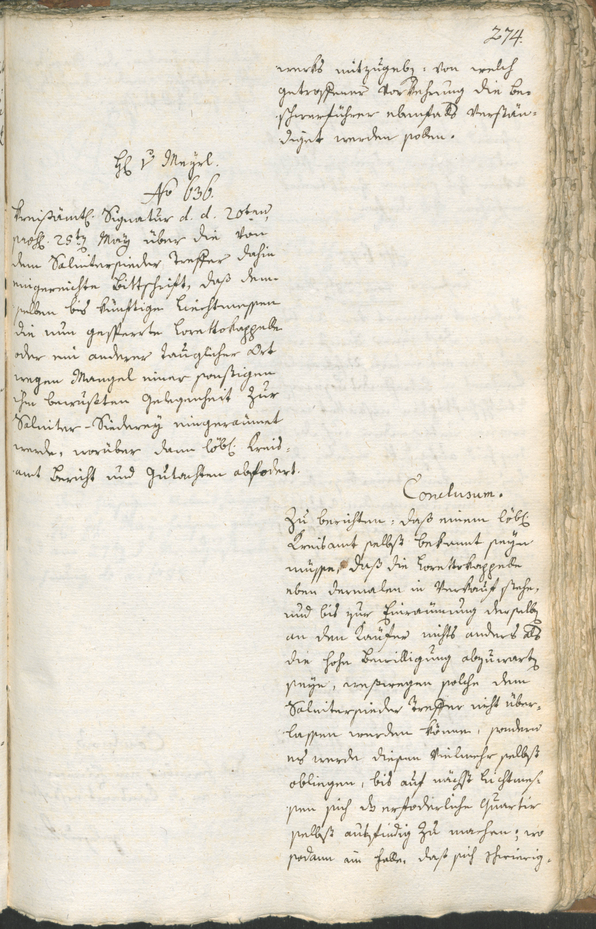 274.
werks mitzugeben: von welch
getroffener Vorkehrung die be-
schwerführer ebenfalls verstän-
diget werden sollen.
H. v. Mayrl.
No 636.
Kreisämtl. Signatur d. d. 20ten
praes. 25ten May über die von
dem Salitersieder Treffer dahin
eingereichte Bittschrift, daß dem-
selben bis künftige Liechtmessen
die nun gesperrte Lorettokappelle
oder ein anderer tauglicher Ort
wegen Mangel einer sonstigen
ihm bewußten Gelegenheit zur
Saliter-Siederey eingeraumet
werde, worüber dann löbl. Kreis-
amt Bericht und Gutachten abfodert.
Conclusum.
Zu berichten: daß einem löbl.
Kreisamt selbst bekannt seyn
müsse, daß die Lorettokappelle
eben dermalen in Verkauf stehe,
und bis zur Einraumung derselben
an den Käufer nichts anders als
die hohe Bewilligung abzuwarten
seye, weßwegen solche dem
Salitersieder Treffer nicht über-
lassen werden könne, sondern
es werde diesem vielmehr selbst
obliegen, bis auf nächst Lichtmes-
sen sich das erfoderliche Quartier
selbst ausfindig zu machen; wo
sodann im Falle, daß sich schwierig-